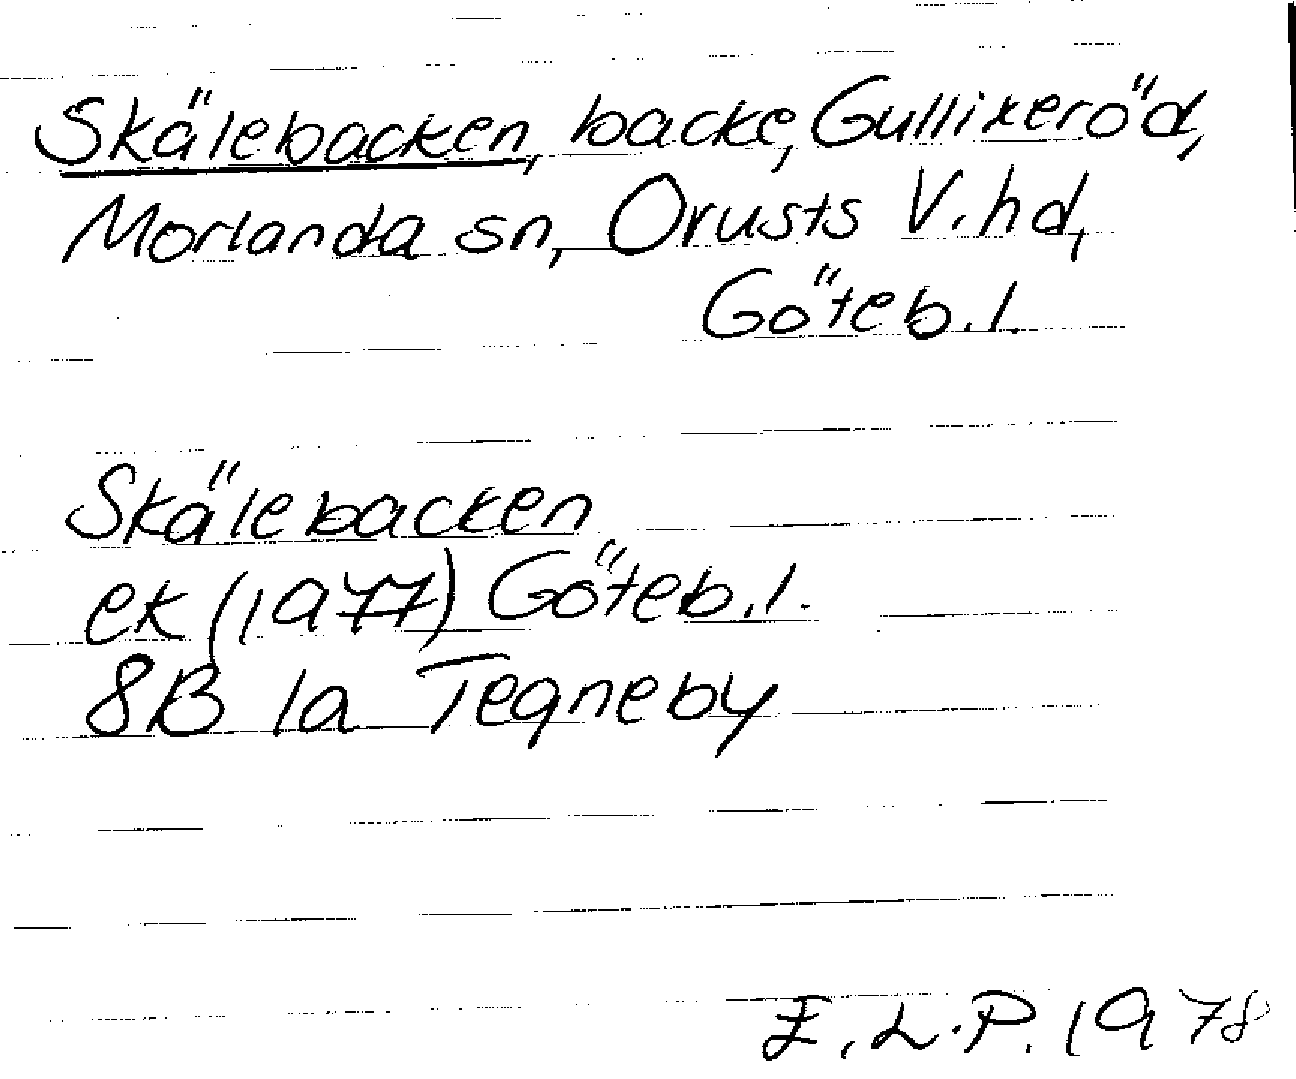 Skälebacken, backe, Gullixeröd,
Morlanda sn, Orusts V. hd,
Göteb. l.
Skälebacken
ek (1977) Göteb. l.
8B 1a Tegneby
E. L. P. 1978